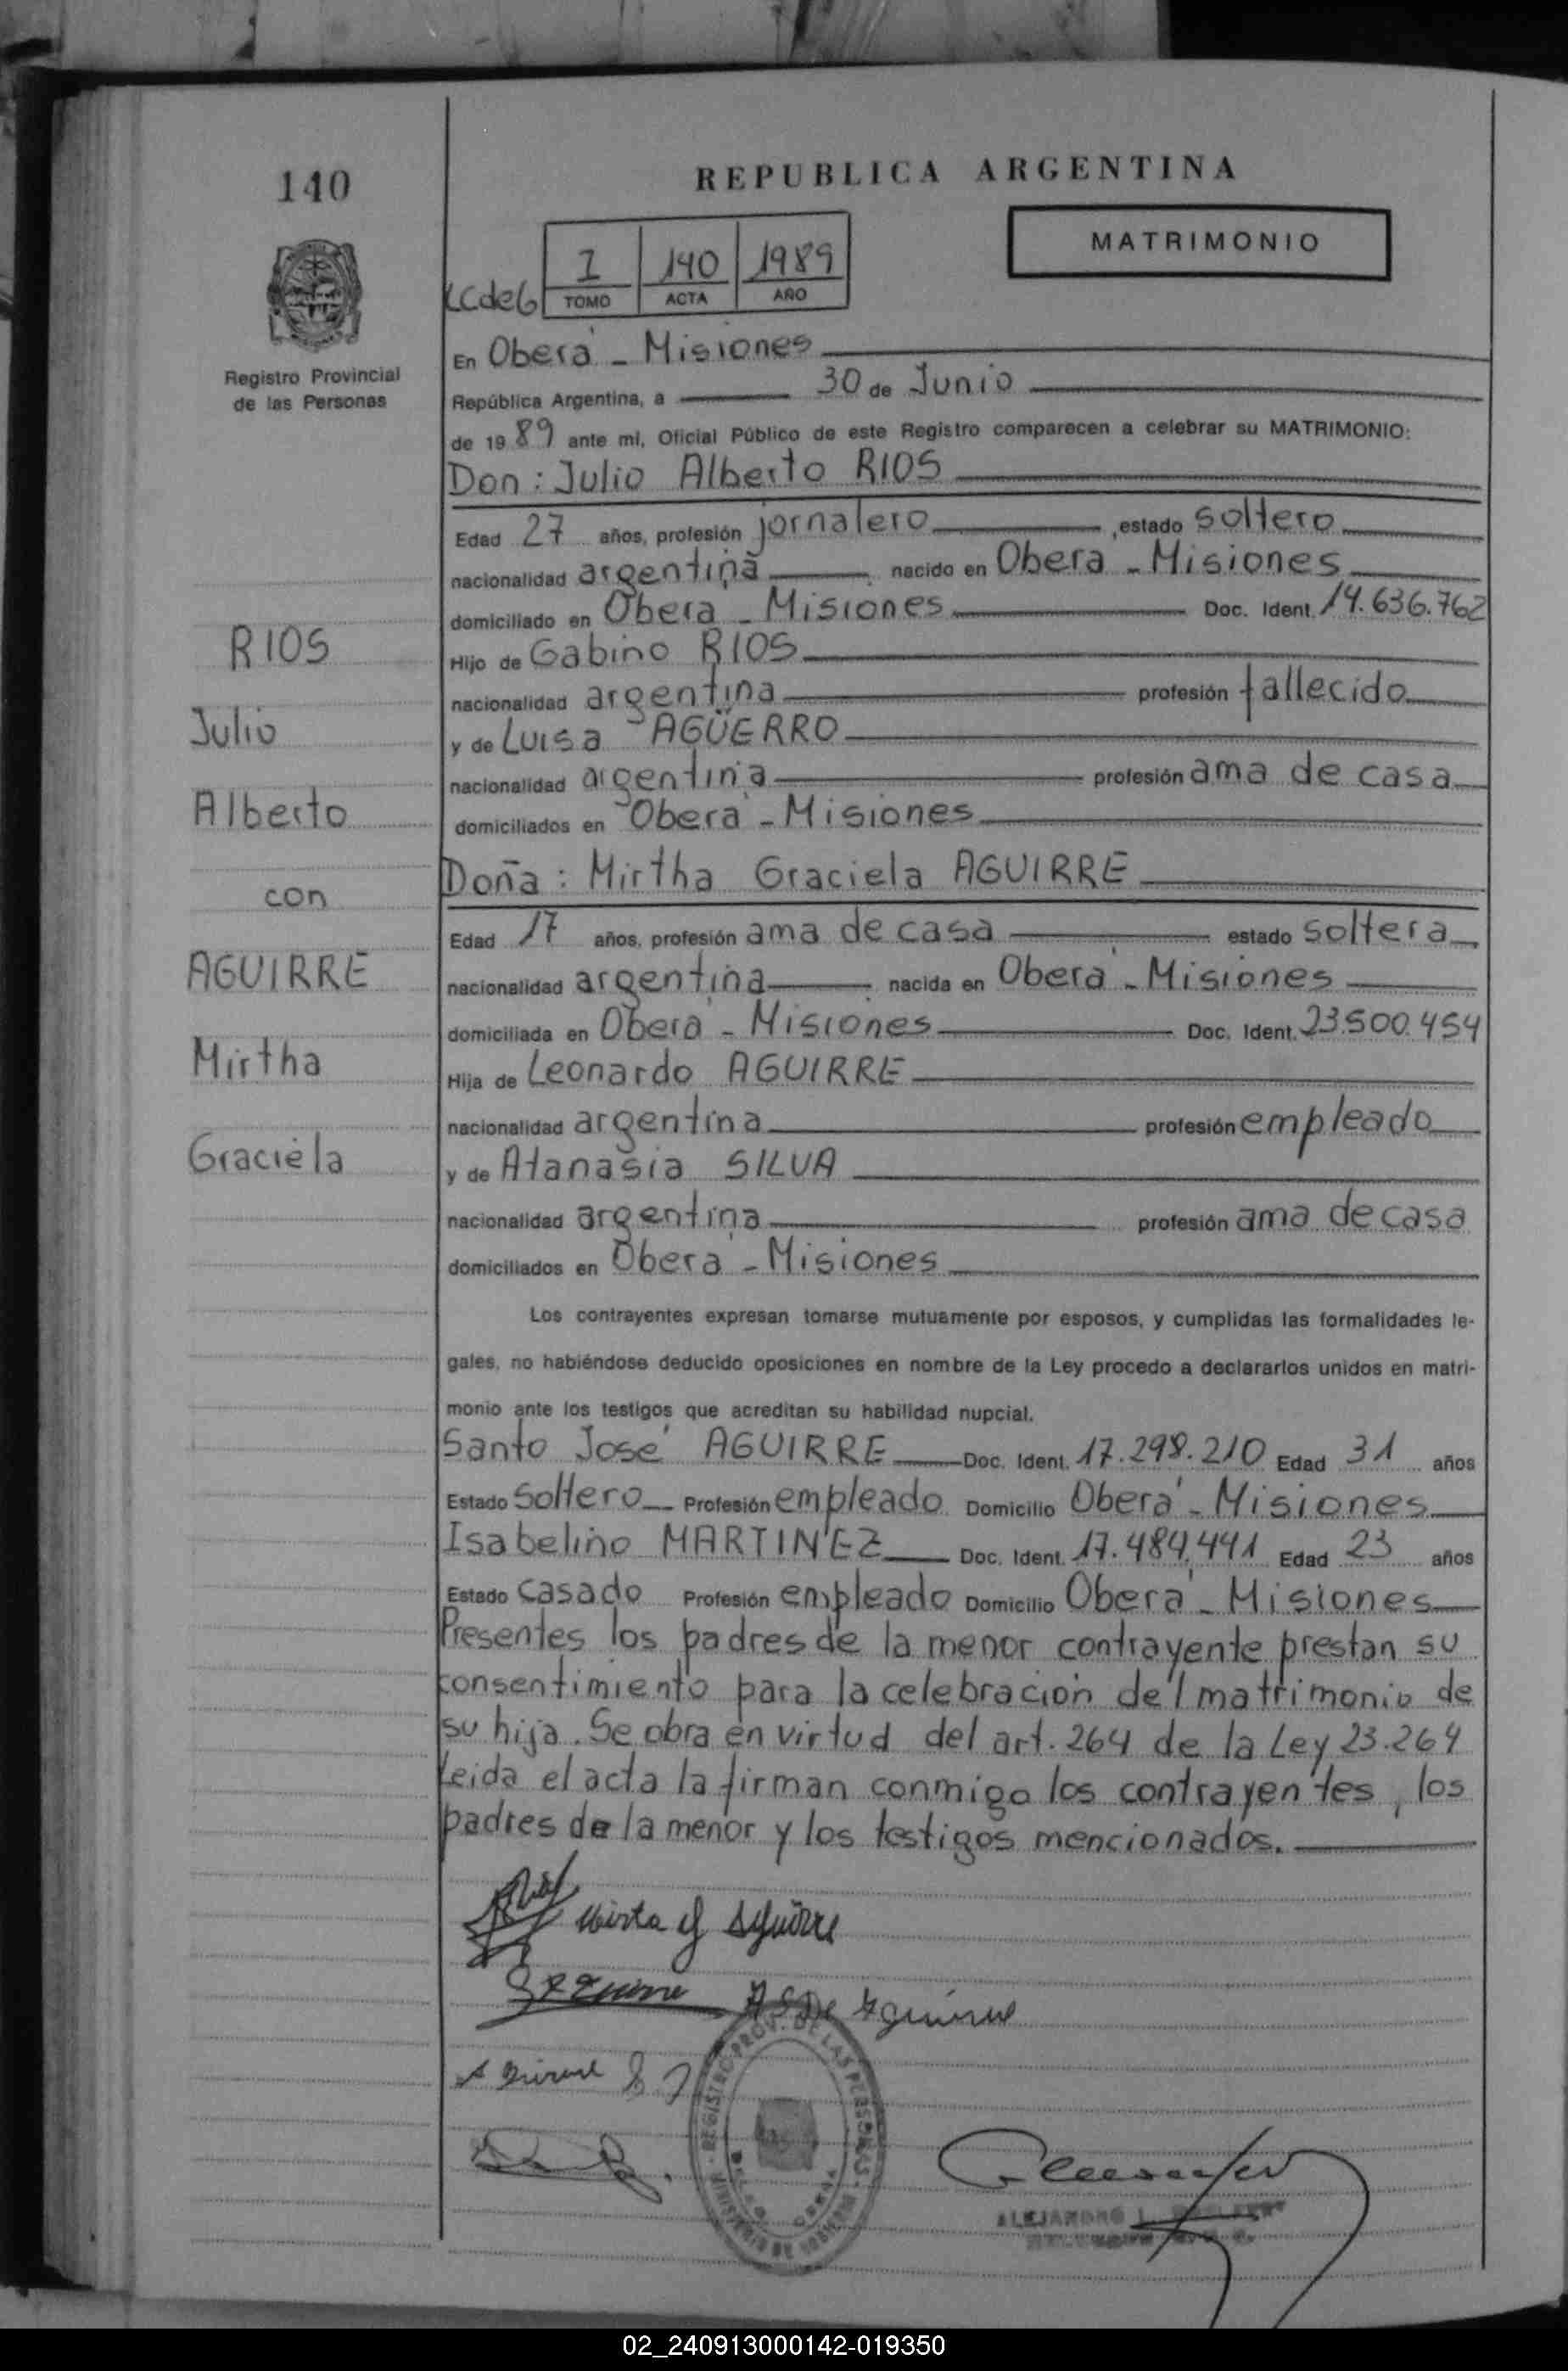 140
REPUBLICA ARGENTINA
MATRIMONIO
1 140 1989
TOMO ACTA AÑO
Registro Provincial
de las Personas
En Oberá - Misiones
República Argentina, a 30 de Junio
de 1989 ante mí, Oficial Público de este Registro comparecen a celebrar su MATRIMONIO:
Don: Julio Alberto RIOS
Edad 27 años, profesión jornalero, estado soltero
nacionalidad argentina nacido en Obera - Misiones
domiciliado en Obera - Misiones Doc. Ident. 14.636.762
Hijo de Gabino RIOS
nacionalidad argentina profesión fallecido
y de Luisa AGÜERRO
nacionalidad argentina profesión ama de casa
domiciliados en Oberá - Misiones
Doña: Mirtha Graciela AGUIRRE
Edad 17 años, profesión ama de casa estado soltera
nacionalidad argentina nacida en Oberá - Misiones
domiciliada en Oberá - Misiones Doc. Ident. 23.500.454
Hija de Leonardo AGUIRRE
nacionalidad argentina profesión empleado
y de Atanasia SILVA
nacionalidad argentina profesión ama de casa
domiciliados en Oberá - Misiones
RIOS
Julio
Alberto
con
AGUIRRE
Mirtha
Graciela
Los contrayentes expresan tomarse mutuamente por esposos, y cumplidas las formalidades le-
gales, no habiéndose deducido oposiciones en nombre de la Ley procedo a declararlos unidos en matri-
monio ante los testigos que acreditan su habilidad nupcial.
Santo José AGUIRRE Doc. Ident. 17.298.210 Edad 31 años
Estado soltero Profesión empleado Domicilio Oberá - Misiones
Isabelino MARTINEZ Doc. Ident. 17.484.441 Edad 23 años
Estado casado Profesión empleado Domicilio Oberá - Misiones
Presentes los padres de la menor contrayente prestan su
consentimiento para la celebración del matrimonio de
su hija. Se obra en virtud del art. 264 de la Ley 23.264
Leida el acta la firman conmigo los contrayentes, los
padres de la menor y los testigos mencionados.
Mirta G Aguirre
REGISTRO PROV. DE LAS PERSONAS
MINISTERIO DE GOBIERNO
ALEJANDRO
02_240913000142-019350